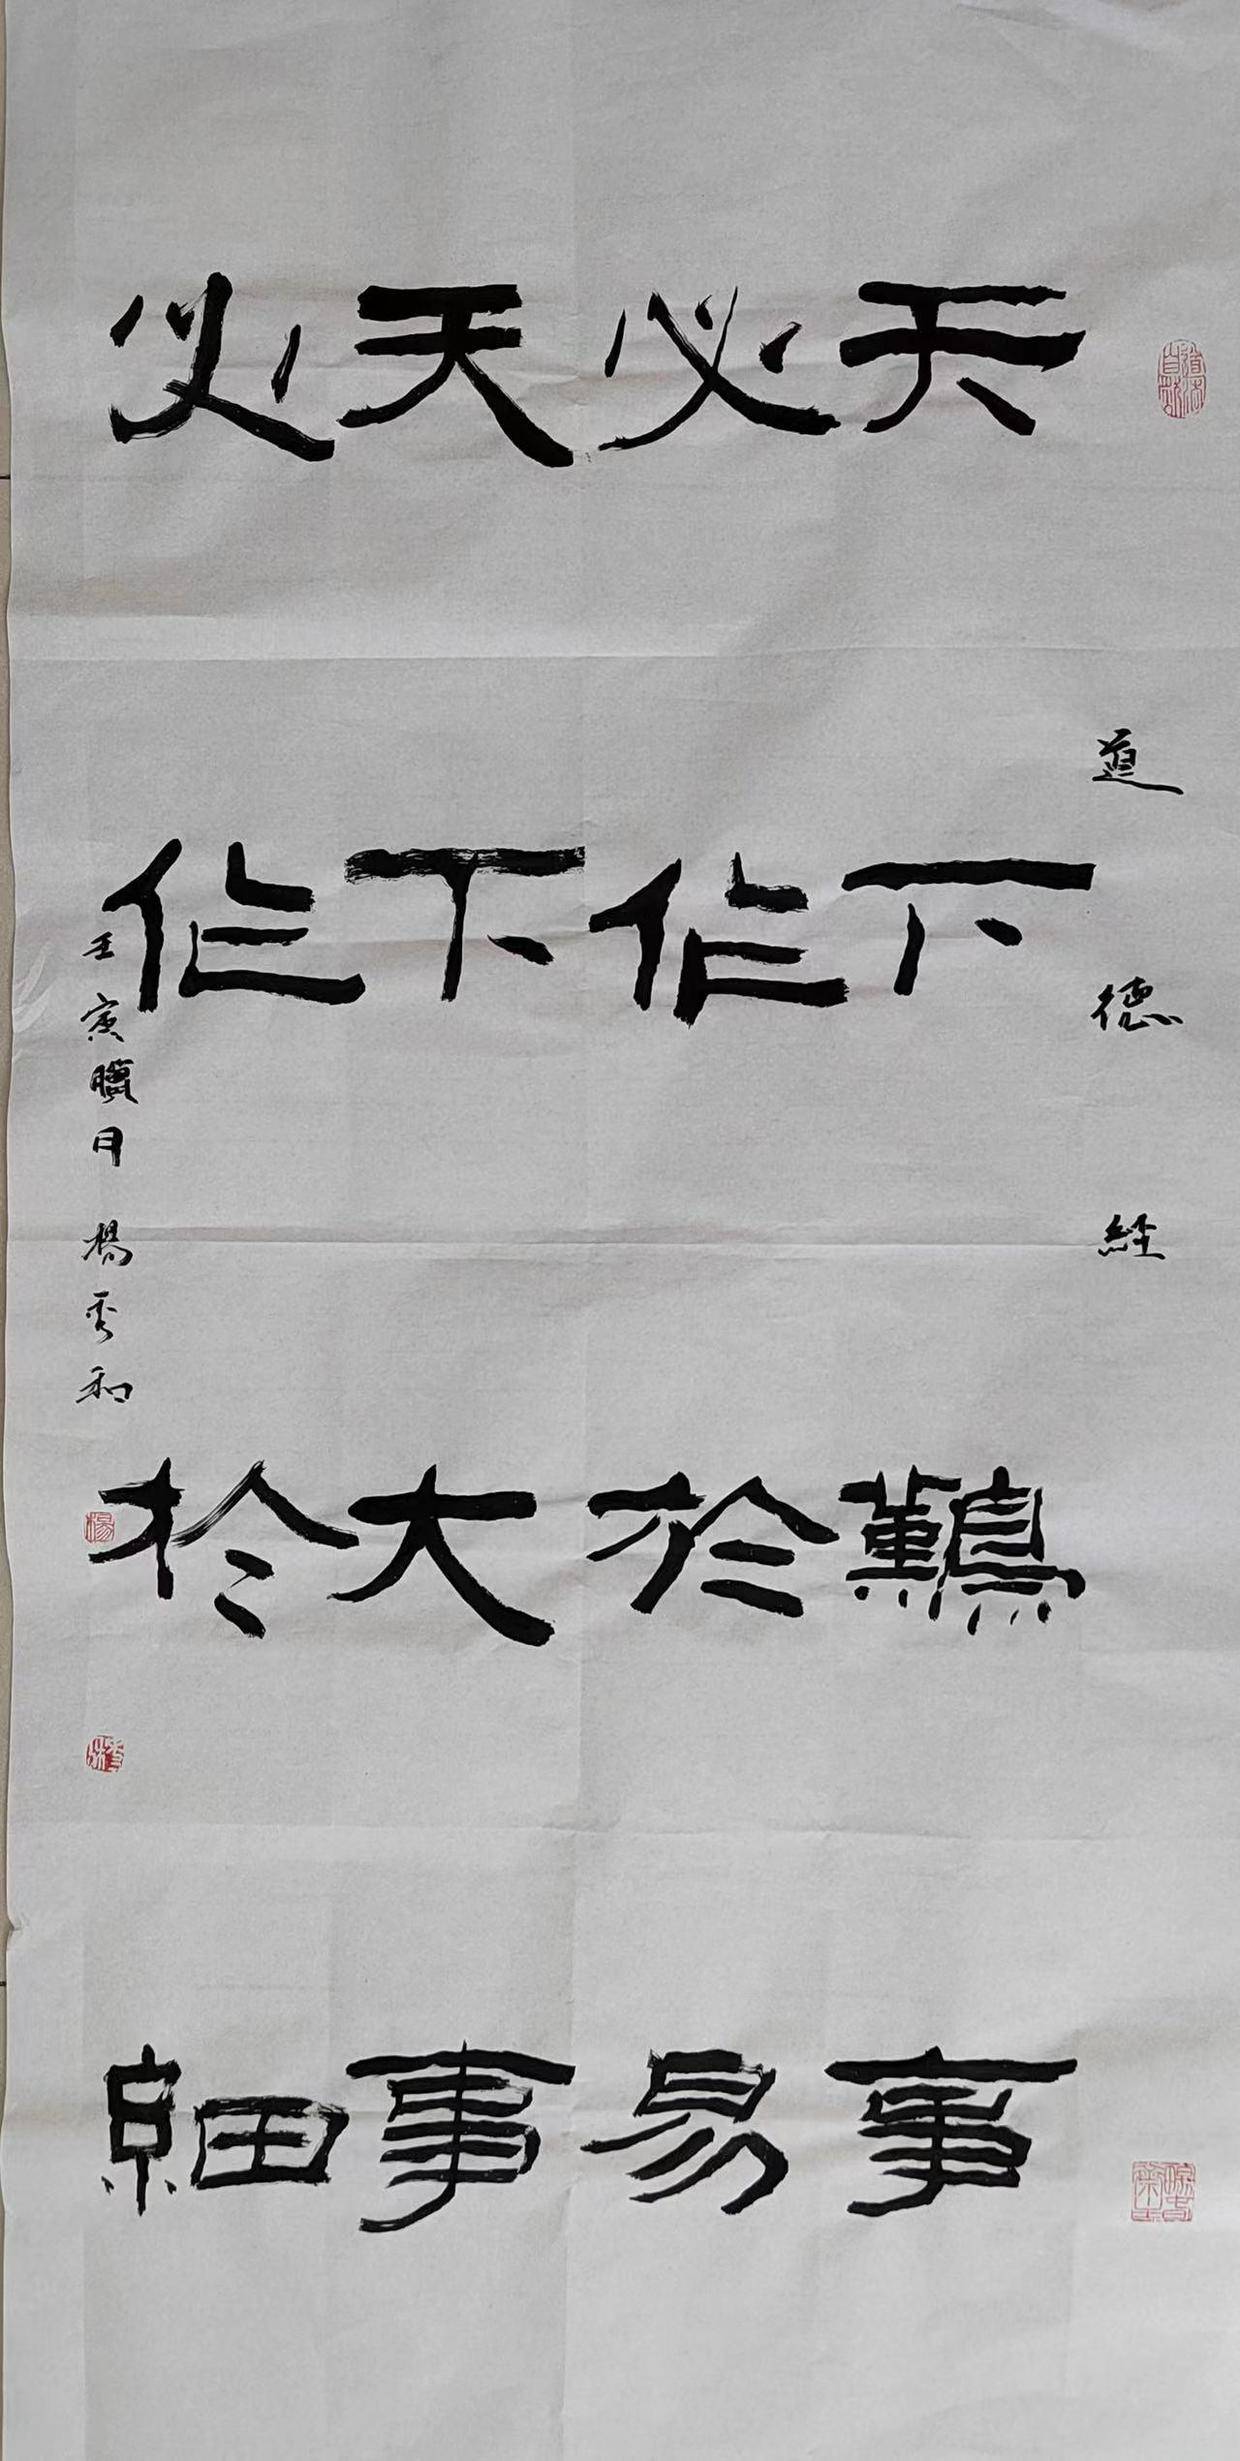 道德経
天下難事
必作於易
天下大事
必作於細
壬寅臘月 楊秀和
道法自然
楊